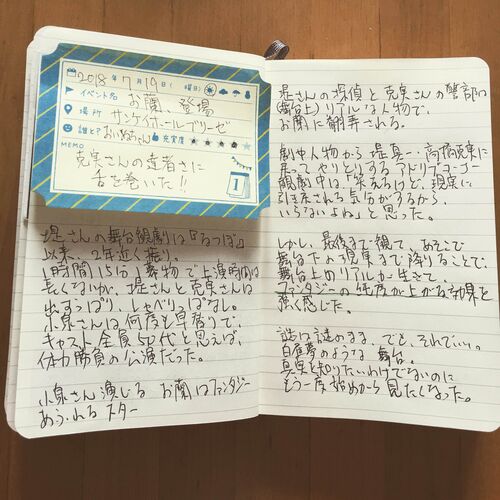 2018年7月19日( 曜日)
イベント名 お蘭、登場
場所 サンケイホールブリーゼ
誰と? おいぬちゃん 充実度 ★★★★★
MEMO
克実さんの達者さに
舌を巻いた!!
1
堤さんの舞台観劇は『るつぼ』
以来、2年近く振り。
1時間15分1幕物で上演時間は
長くないが、堤さんと克実さんは
出ずっぱり、しゃべりっぱなし。
小泉さんは何度も早替りで、
キャスト全員50代と思えば、
体力勝負の公演だった。
小泉さん演じるお蘭はファンタジー
あふれるスター
堤さんの探偵と克実さんの警部は
(舞台上)リアルな人物で、
お蘭に翻弄される。
劇中人物から堤真一・高橋克実に
戻ってやりとりするアドリブコーナー
観劇中は「笑えるけど、現実に
引き戻される気分がするから、
いらないよね」と思った。
しかし、最後まで観て、あそこで
舞台下の現実まで降りることで、
舞台上のリアルが生きて、
ファンタジーの純度が上がる効果を
強く感じた。
謎は謎のまま、でも、それでいい。
白昼夢のような舞台。
真実を知りたいわけでないのに
もう一度始めから見たくなった。